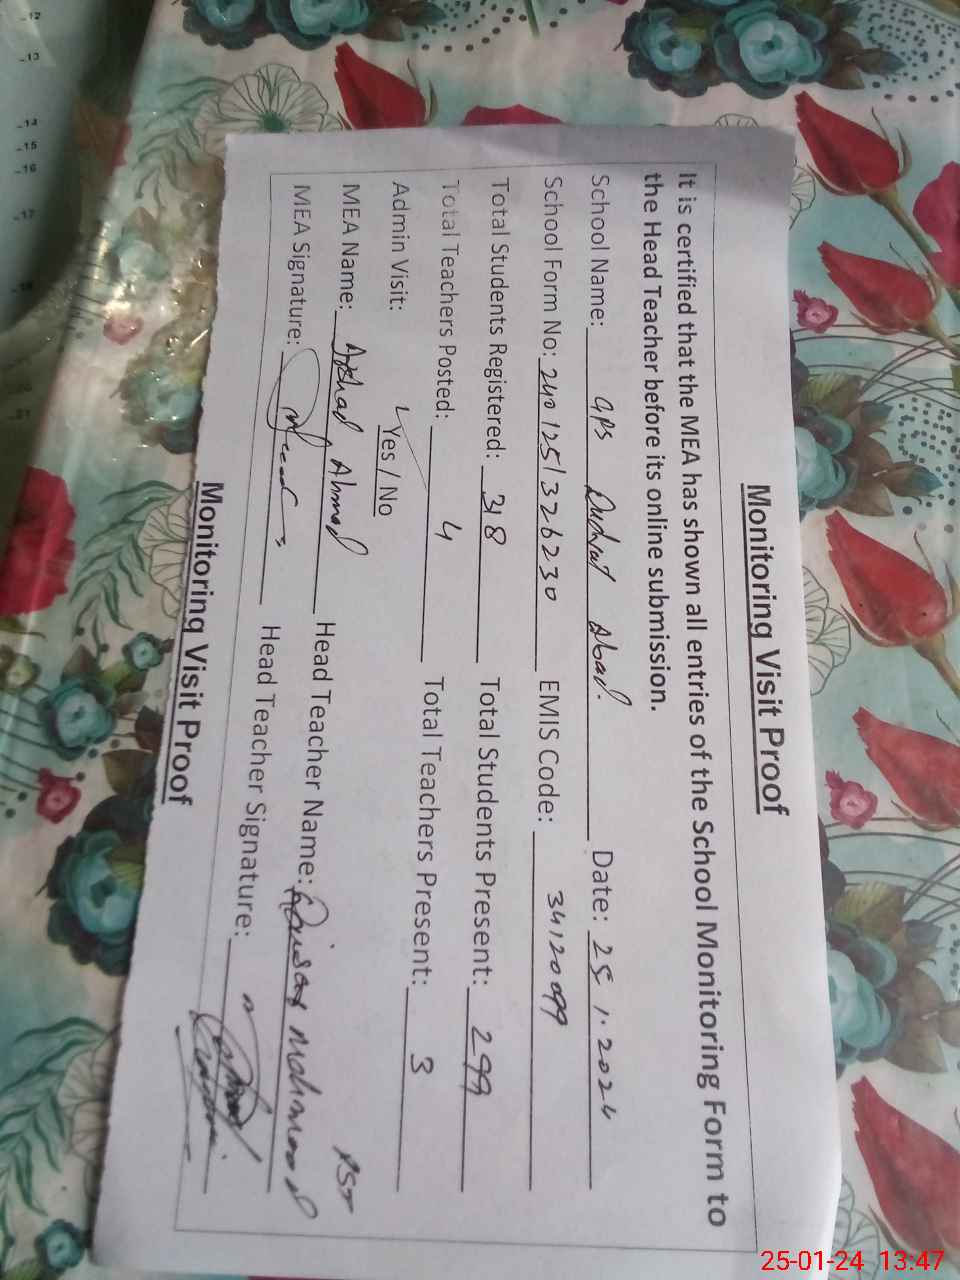 Monitoring Visit Proof
It is certified that the MEA has shown all entries of the School Monitoring Form to
the Head Teacher before its online submission.
School Name: GPS Abad. Date: 25.1.2024
School Form No: 240125/326230 EMIS Code: 34120099
Total Students Registered: 318 Total Students Present: 299
Total Teachers Posted: 4 Total Teachers Present: 3
Admin Visit: Yes / No
MEA Name: Arshad Ahmad Head Teacher Name: Mahmood PST
MEA Signature: Head Teacher Signature:
Monitoring Visit Proof
25-01-24 13:47